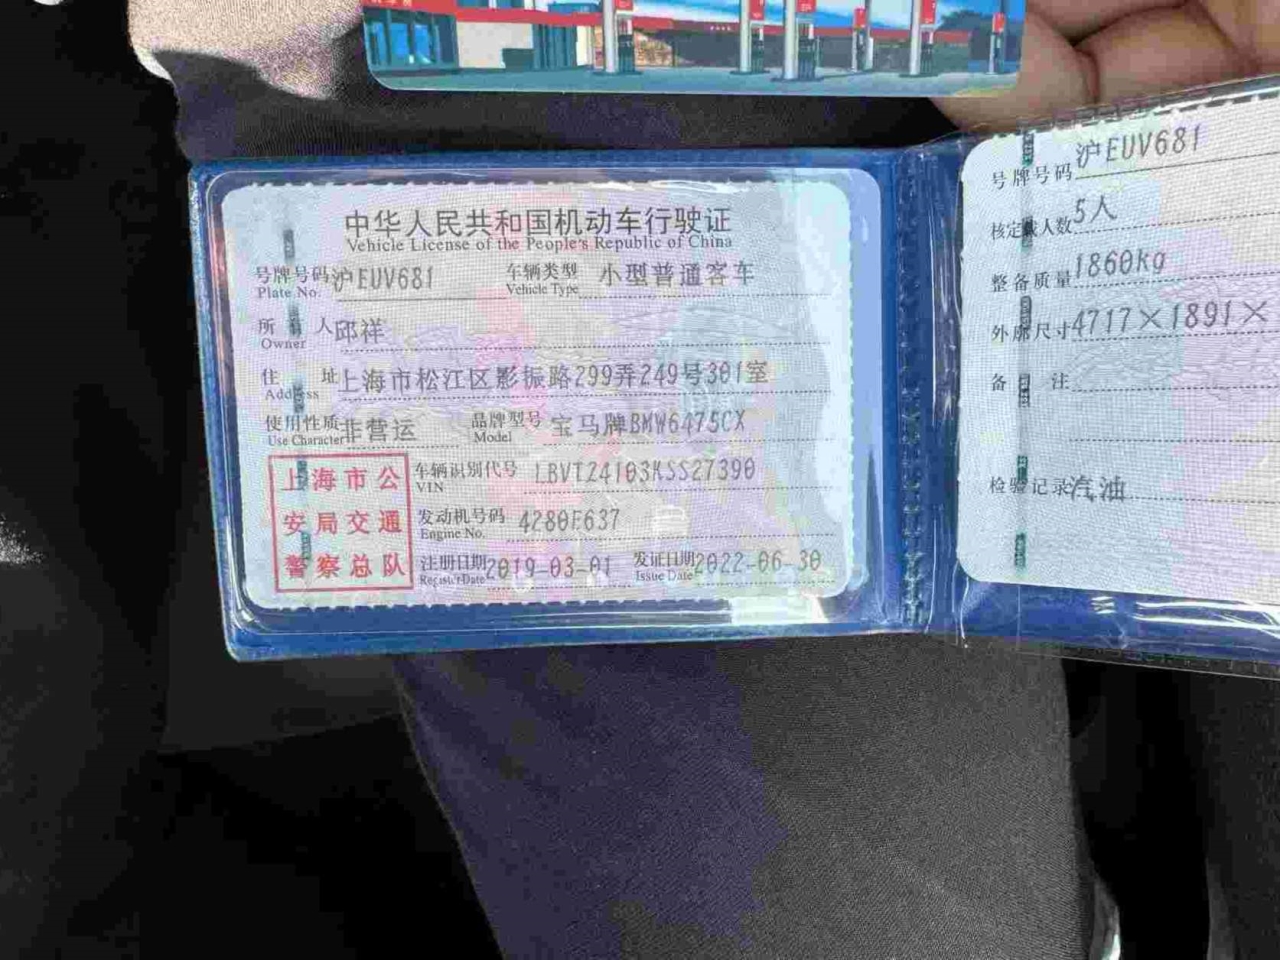 中华人民共和国机动车行驶证
Vehicle License of the People's Republic of China
号牌号码 沪EUV681 车辆类型 小型普通客车
Plate No. Vehicle Type
所有人 邱祥
Owner
住址 上海市松江区影振路299弄249号301室
Address
使用性质 非营运 品牌型号 宝马牌BMW6475CX
Use Character Model
上海市公
安局交通
警察总队
车辆识别代号 LBVTZ4103KSS27390
VIN
发动机号码 4280F637
Engine No.
注册日期 2019-03-01 发证日期 2022-06-30
Register Date Issue Date
号牌号码 沪EUV681
核定载人数 5人
整备质量 1860kg
外廓尺寸 4717×1891×
备注
检验记录 汽油